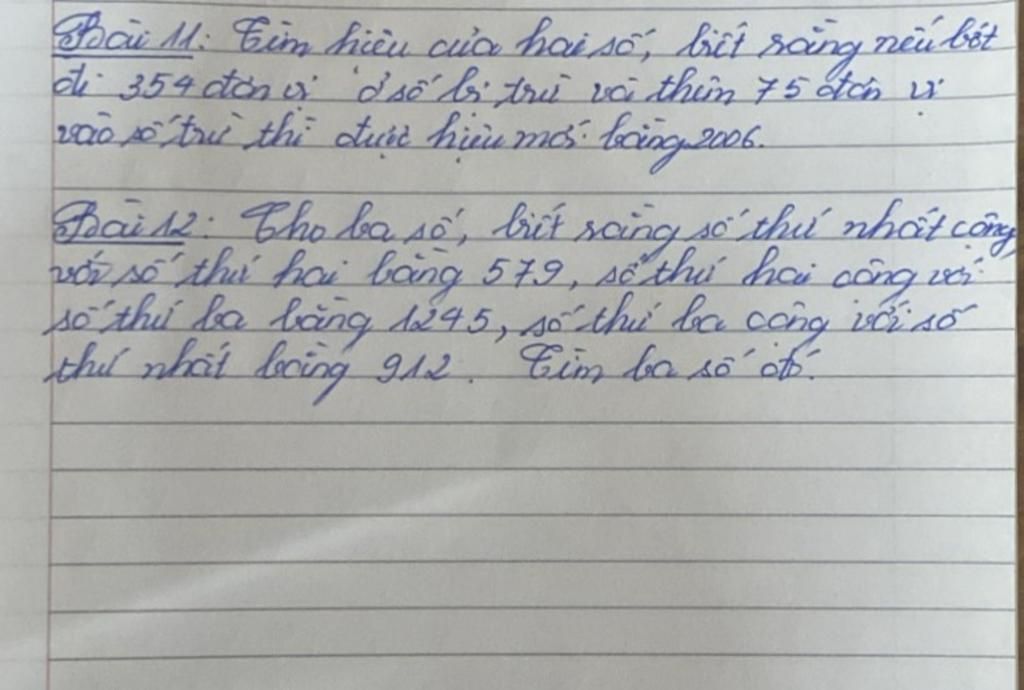 Bài 11: Tìm hiệu của hai số, biết rằng nếu bớt
đi 354 đơn vị ở số bị trừ và thêm 75 đơn vị
vào số trừ thì được hiệu mới bằng 2006.
Bài 12: Cho ba số, biết rằng số thứ nhất cộng
với số thứ hai bằng 579, số thứ hai cộng với
số thứ ba bằng 1245, số thứ ba cộng với số
thứ nhất bằng 912. Tìm ba số đó.